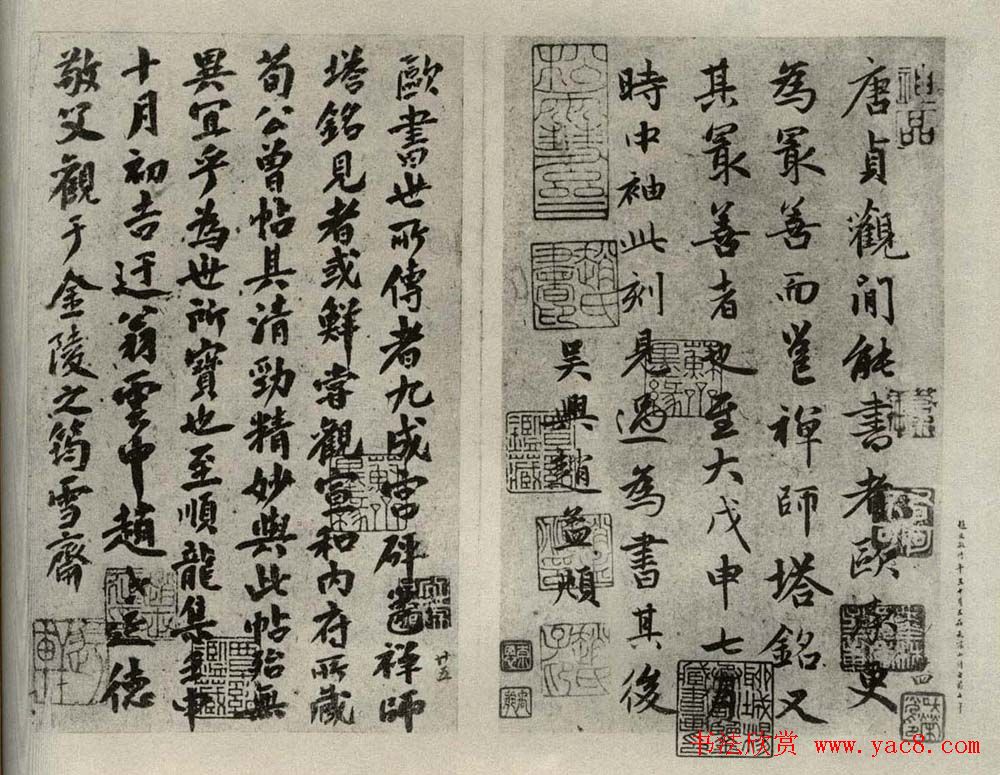 唐貞觀間能書者歐率更
為冣善而邕禪師塔銘又
其冣善者也至大戊申七月
時中袖此刻見過為書其後
吳興趙孟頫
歐書世所傳者九成宮碑邕禪師
塔銘見者或鮮嘗觀宣和內府所藏
荀公曾帖其清勁精妙與此帖殆無
異宜乎為世所寶也至順龍集壬申
十月初吉迂翁雲中趙世延德
敬父觀于金陵之筠雪齋
神品
趙氏書印
蘇齋墨緣
蘇齋墨緣
廿五
四
书法欣赏 www.yac8.com